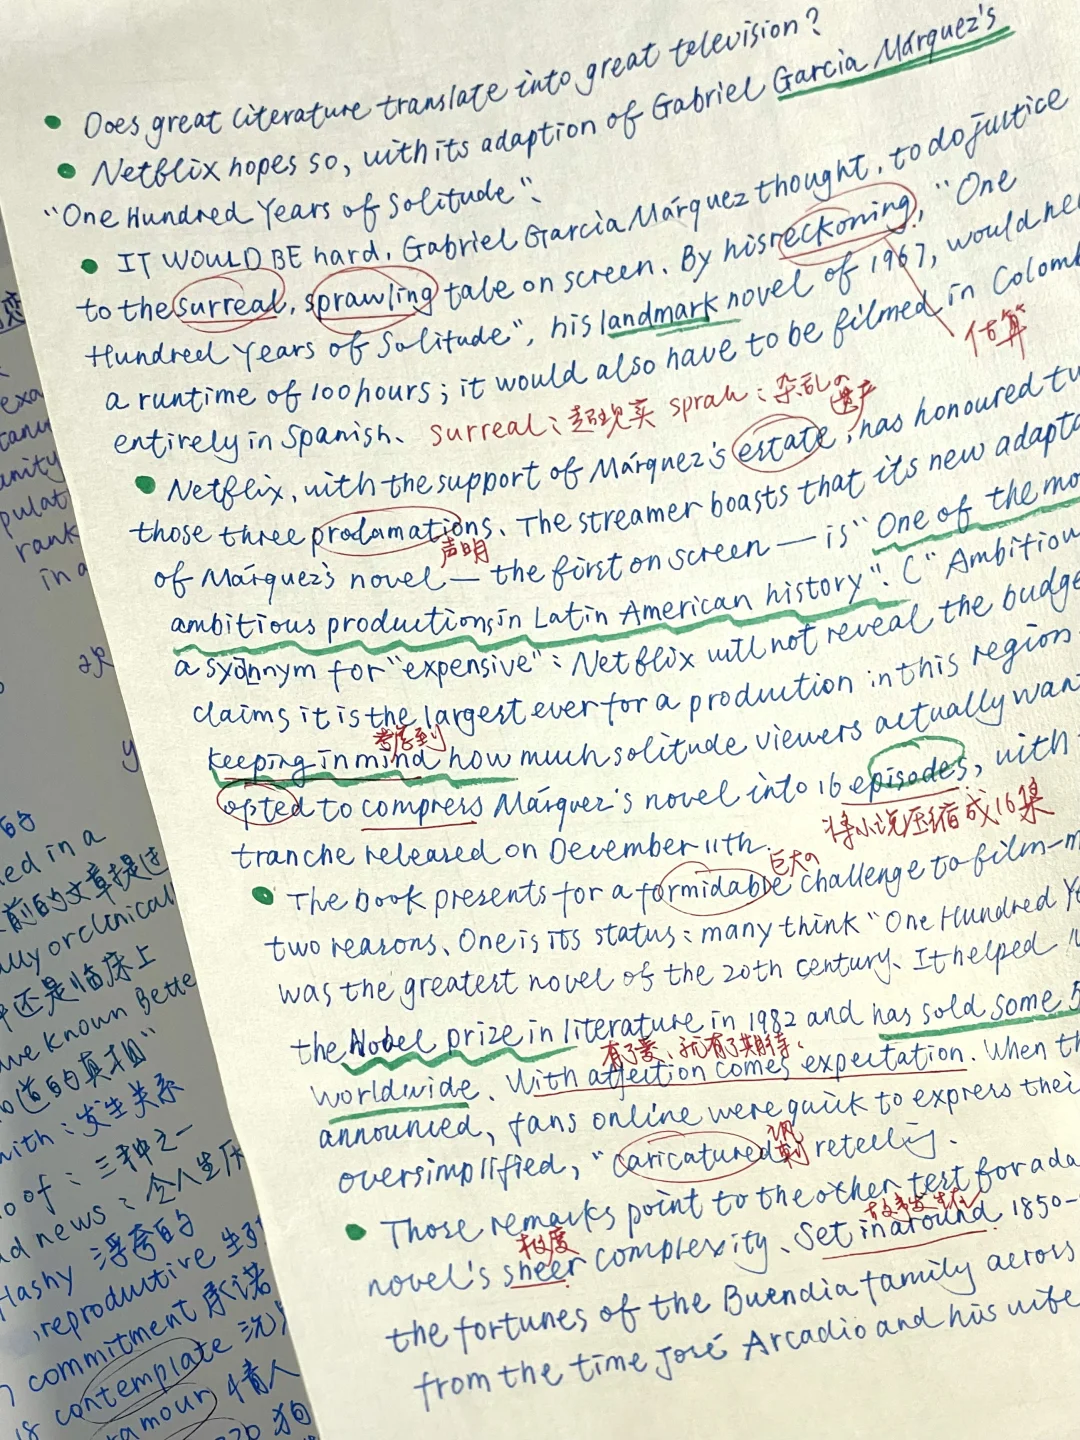 Does great literature translate into great television?
Netflix hopes so, with its adaption of Gabriel Garcia Márquez's
"One Hundred Years of Solitude".
IT WOULD BE hard, Gabriel Garcia Márquez thought, to do justice
to the surreal, sprawling tale on screen. By his reckoning, "One
Hundred Years of Solitude", his landmark novel of 1967, would
估算
a runtime of 100 hours; it would also have to be filmed in
entirely in Spanish.
surreal: 超现实 sprah: 杂乱の
遗产
Netflix, with the support of Márquez's estate, has honoured
those three proclamations. The streamer boasts that its new
声明
of Márquez's novel — the first on screen — is "One of the
ambitious productions in Latin American history". ("Ambitiou
a synonym for "expensive": Netflix will not reveal the
claims it is the largest ever for a production in this region
考虑到
keeping in mind how much solitude viewers actually
opted to compress Márquez's novel into 16 episodes, with
将小说压缩成16集
tranche released on December 11th.
巨大の
The book presents for a formidable challenge to film-m
two reasons. One is its status: many think "One Hundred
was the greatest novel of the 20th century. It helped
the Nobel prize in literature in 1982 and has sold some 5
有了爱、就有了期待.
worldwide. With affection comes expectation. When
announced, fans online were quick to express
oversimplified, "caricatured" retelling.
讽刺
Those remarks point to the other test for
极度
故事发生在
novel's sheer complexity. Set in around 1850-
the fortunes of the Buendia family across
from the time José Arcadio and his wife
exa
pulat
rank
in a
的
ed in a
前的文章提过
ally or clinical
还是临床上
ve known Bette
道的真相"
with: 发生关系
o of: 三种之一
d news: 令人生厌
flashy 浮夸的
reproductive
commitment 承诺
contemplate
amour 情人
狗